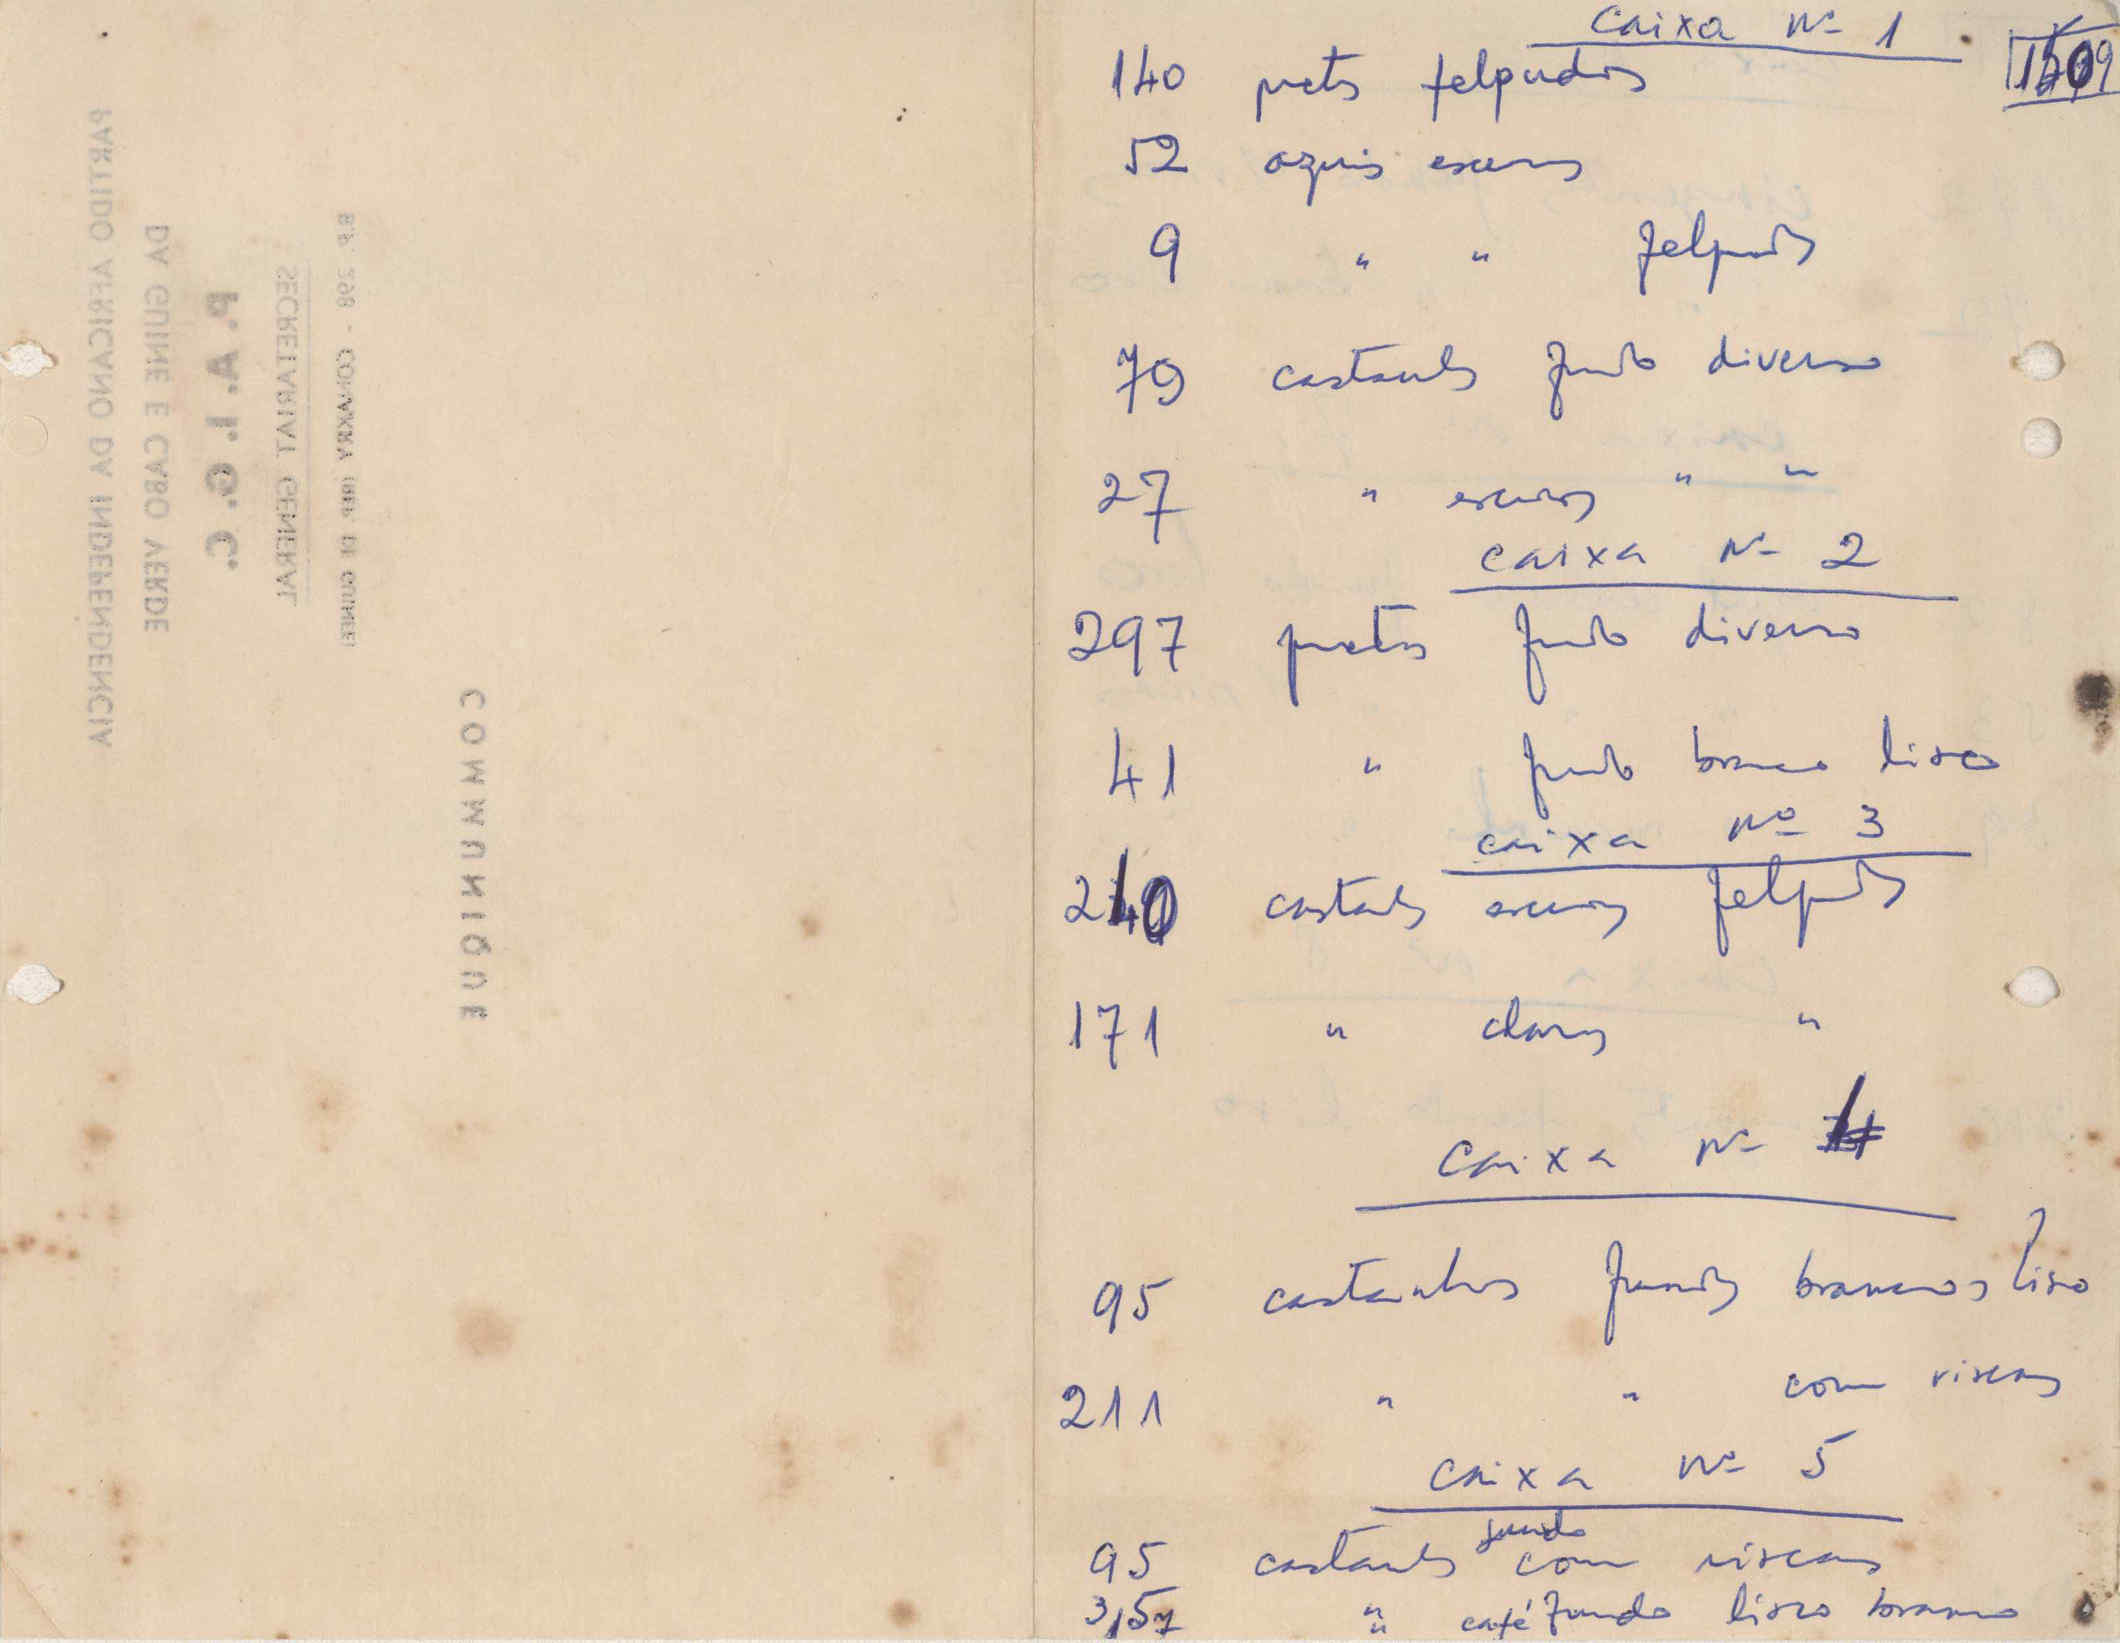 PARTIDO AFRICANO DA INDEPENDENCIA
DA GUINE E CABO VERDE
P. A. I. G. C.
SECRETARIAT GENERAL
BP. 298 - CONAKRY (REP. DE GUINEE)
COMMUNIQUE
caixa Nº 1
140 pretos felpudos
52 azuis escuros
9 " " felpudos
79 castanhos fundo diverso
27 " escuros " "
caixa Nº 2
297 pretos fundo diverso
41 " fundo branco liso
caixa Nº 3
240 castanhos escuros felpudos
171 " claros "
Caixa Nº 4
95 castanhos fundos brancos liso
211 " " com riscas
Caixa Nº 5
fundo
95 castanhos com riscas
" café fundo liso branco